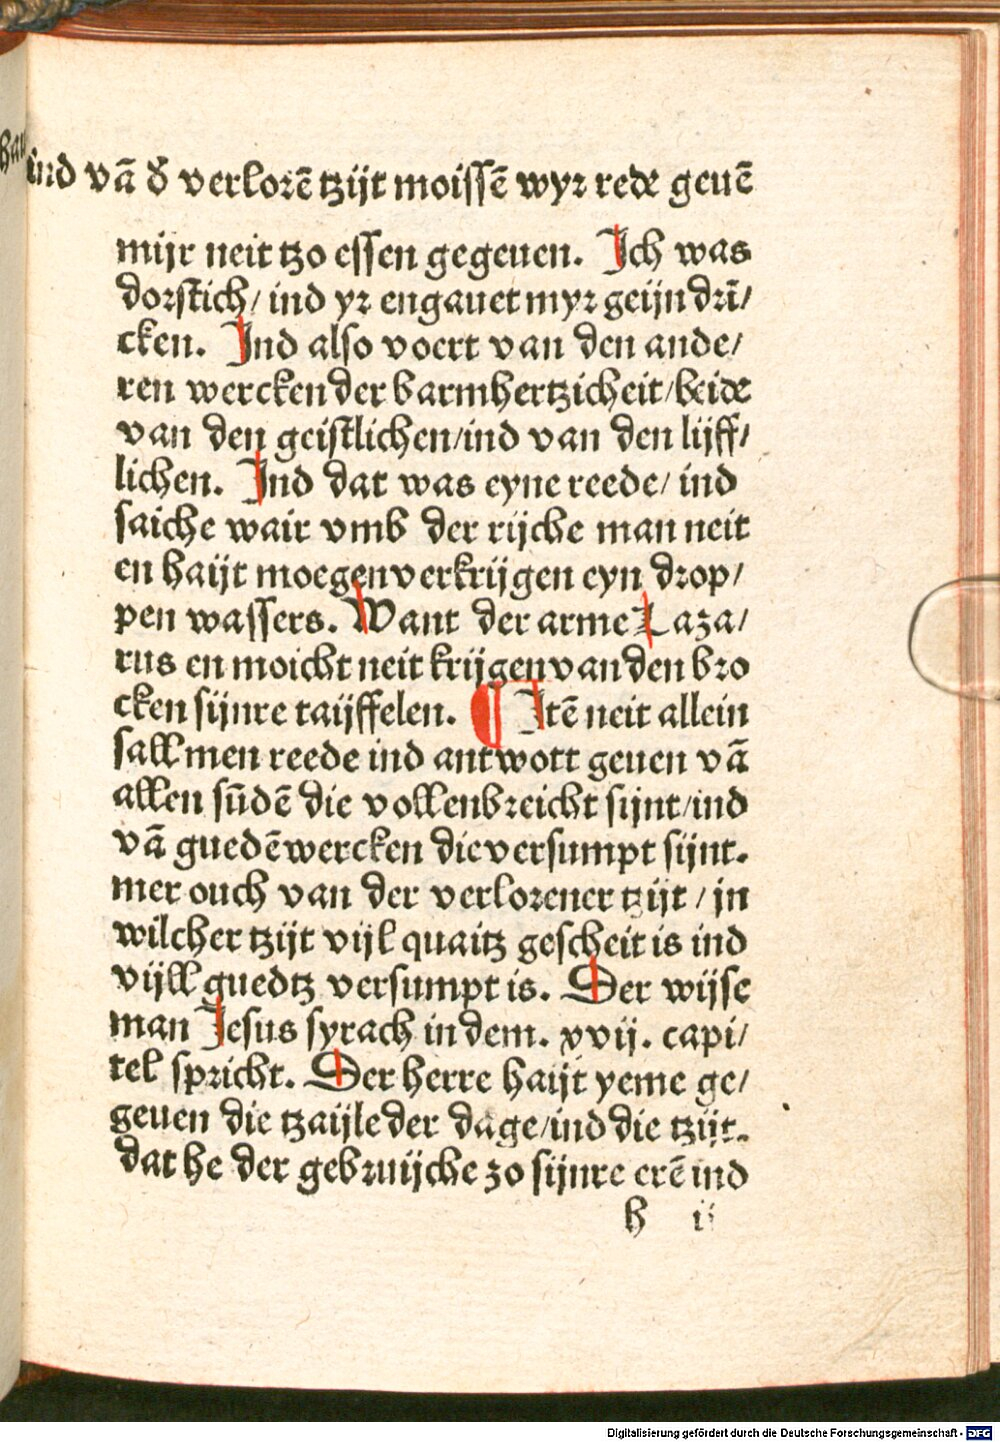 ind vā d̄ verlorē tzijt moissē wyr rede geuē
mijr neit tzo essen gegeuen. Ich was
dorstich/ ind yr engauet myr geijn drī/
cken. Ind also voert van den ande/
ren wercken der barmhertzicheit/beide
van den geistlichen/ind van den lijff/
lichen. Ind dat was eyne reede/ ind
saiche wair vmb der rijche man neit
en haijt moegen verkrijgen eyn drop/
pen wassers. Want der arme Laza/
rus en moicht neit krijgen van den bro
cken sijnre taijffelen. ¶ Itē neit allein
sall men reede ind antwott geuen vā
allen sūdē die vollenbreicht sijnt/ind
vā guedē wercken die versumpt sijnt.
mer ouch van der verlorener tzijt / jn
wilcher tzijt vijl quaitz gescheit is ind
vijll guedtz versumpt is. Der wijse
man Jesus syrach in dem. xvij. capi/
tel spricht. Der herre haijt yeme ge/
geuen die tzaijle der dage/ind die tzijt.
dat he der gebruijche zo sijnre erē ind
h ij
Digitalisierung gefördert durch die Deutsche Forschungsgemeinschaft - DFG